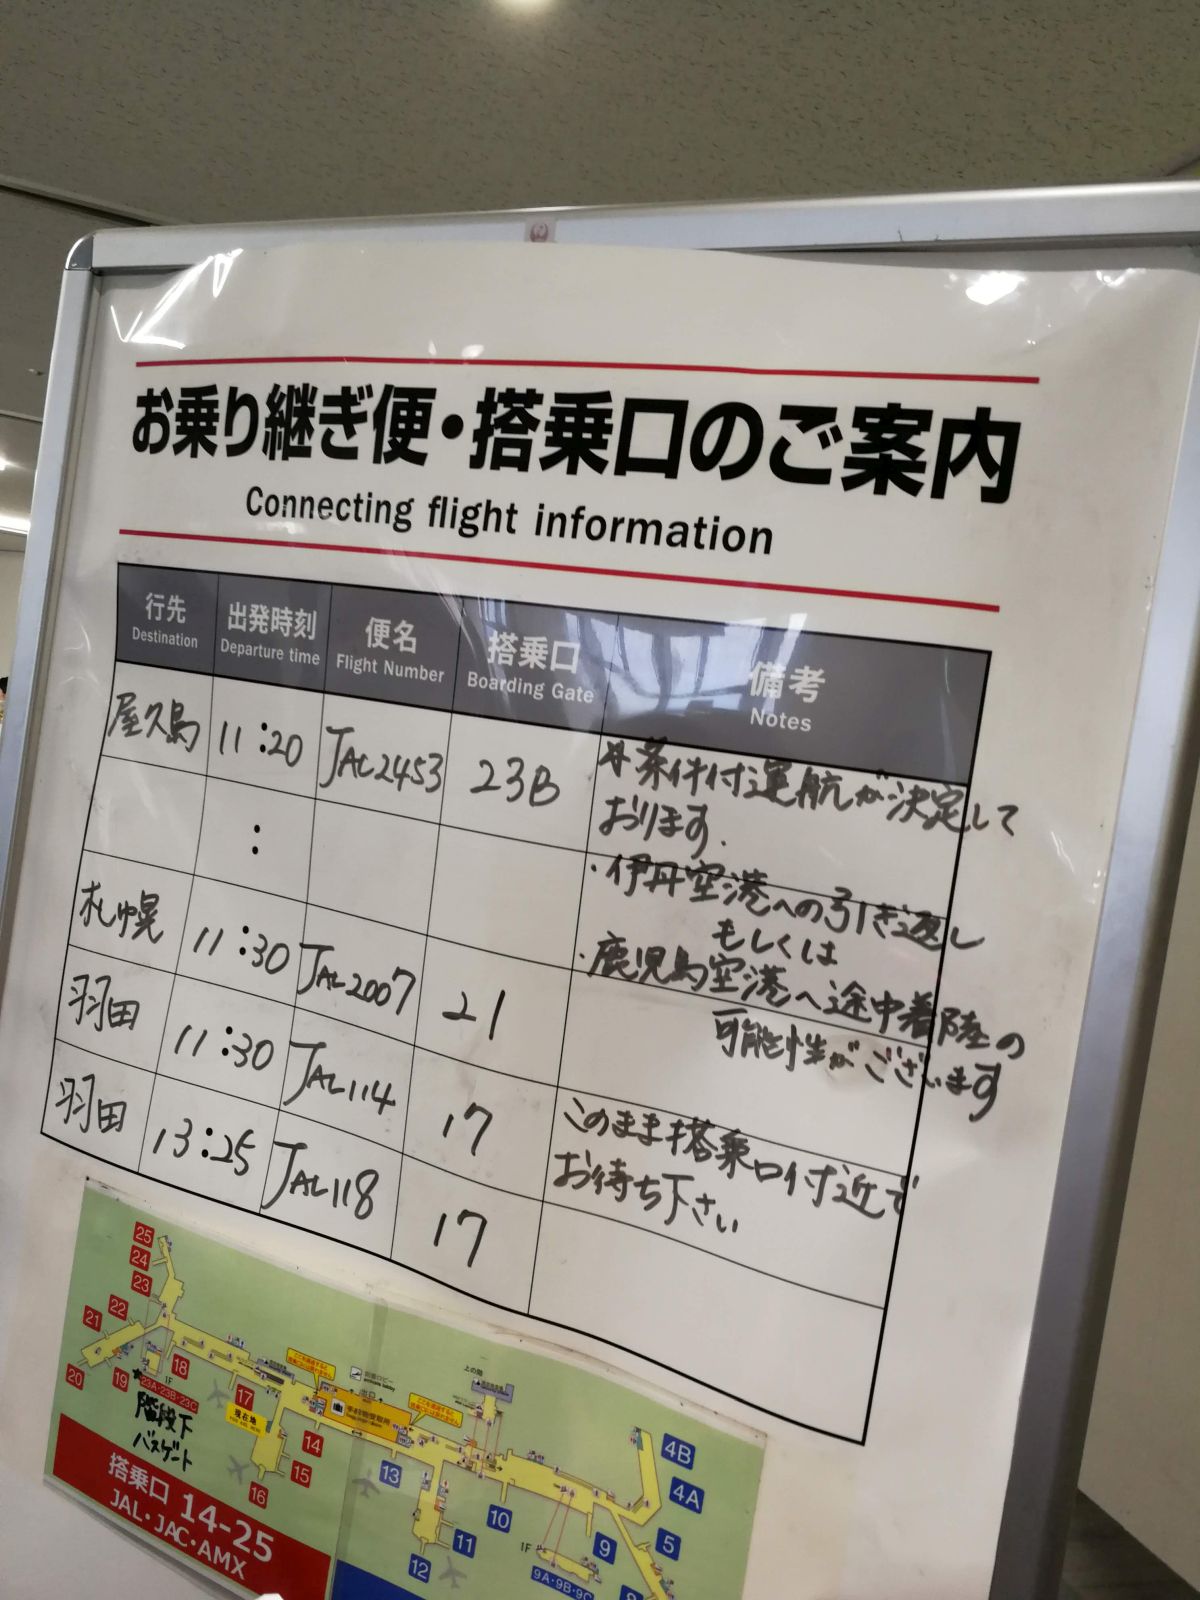 お乗り継ぎ便・搭乗口のご案内
Connecting flight information
行先 出発時刻 便名 搭乗口 備考
Destination Departure time Flight Number Boarding Gate Notes
屋久島 11:20 JAL2453 23B
条件付運航が決定して
おります.
:
・伊丹空港への引き返し
もしくは
・鹿児島空港へ途中着陸の
可能性がございます
札幌 11:30 JAL2007 21
羽田 11:30 JAL114 17
このまま搭乗口付近で
お待ち下さい
羽田 13:25 JAL118 17
25
24
23
22
21
20
19
18
1F
23A・23B・23C
階段下
バスゲート
17
現在地
16
15
14
出口
手荷物受取所
上の階
13
12
11
10
9
1F
9A・9B・9C
4B
4A
5
搭乗口 14-25
JAL・JAC・AMX